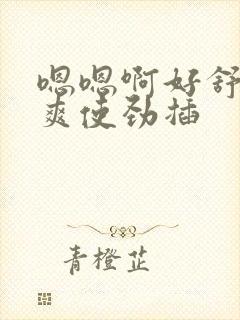 嗯嗯啊好舒
爽使劲插
青橙芷